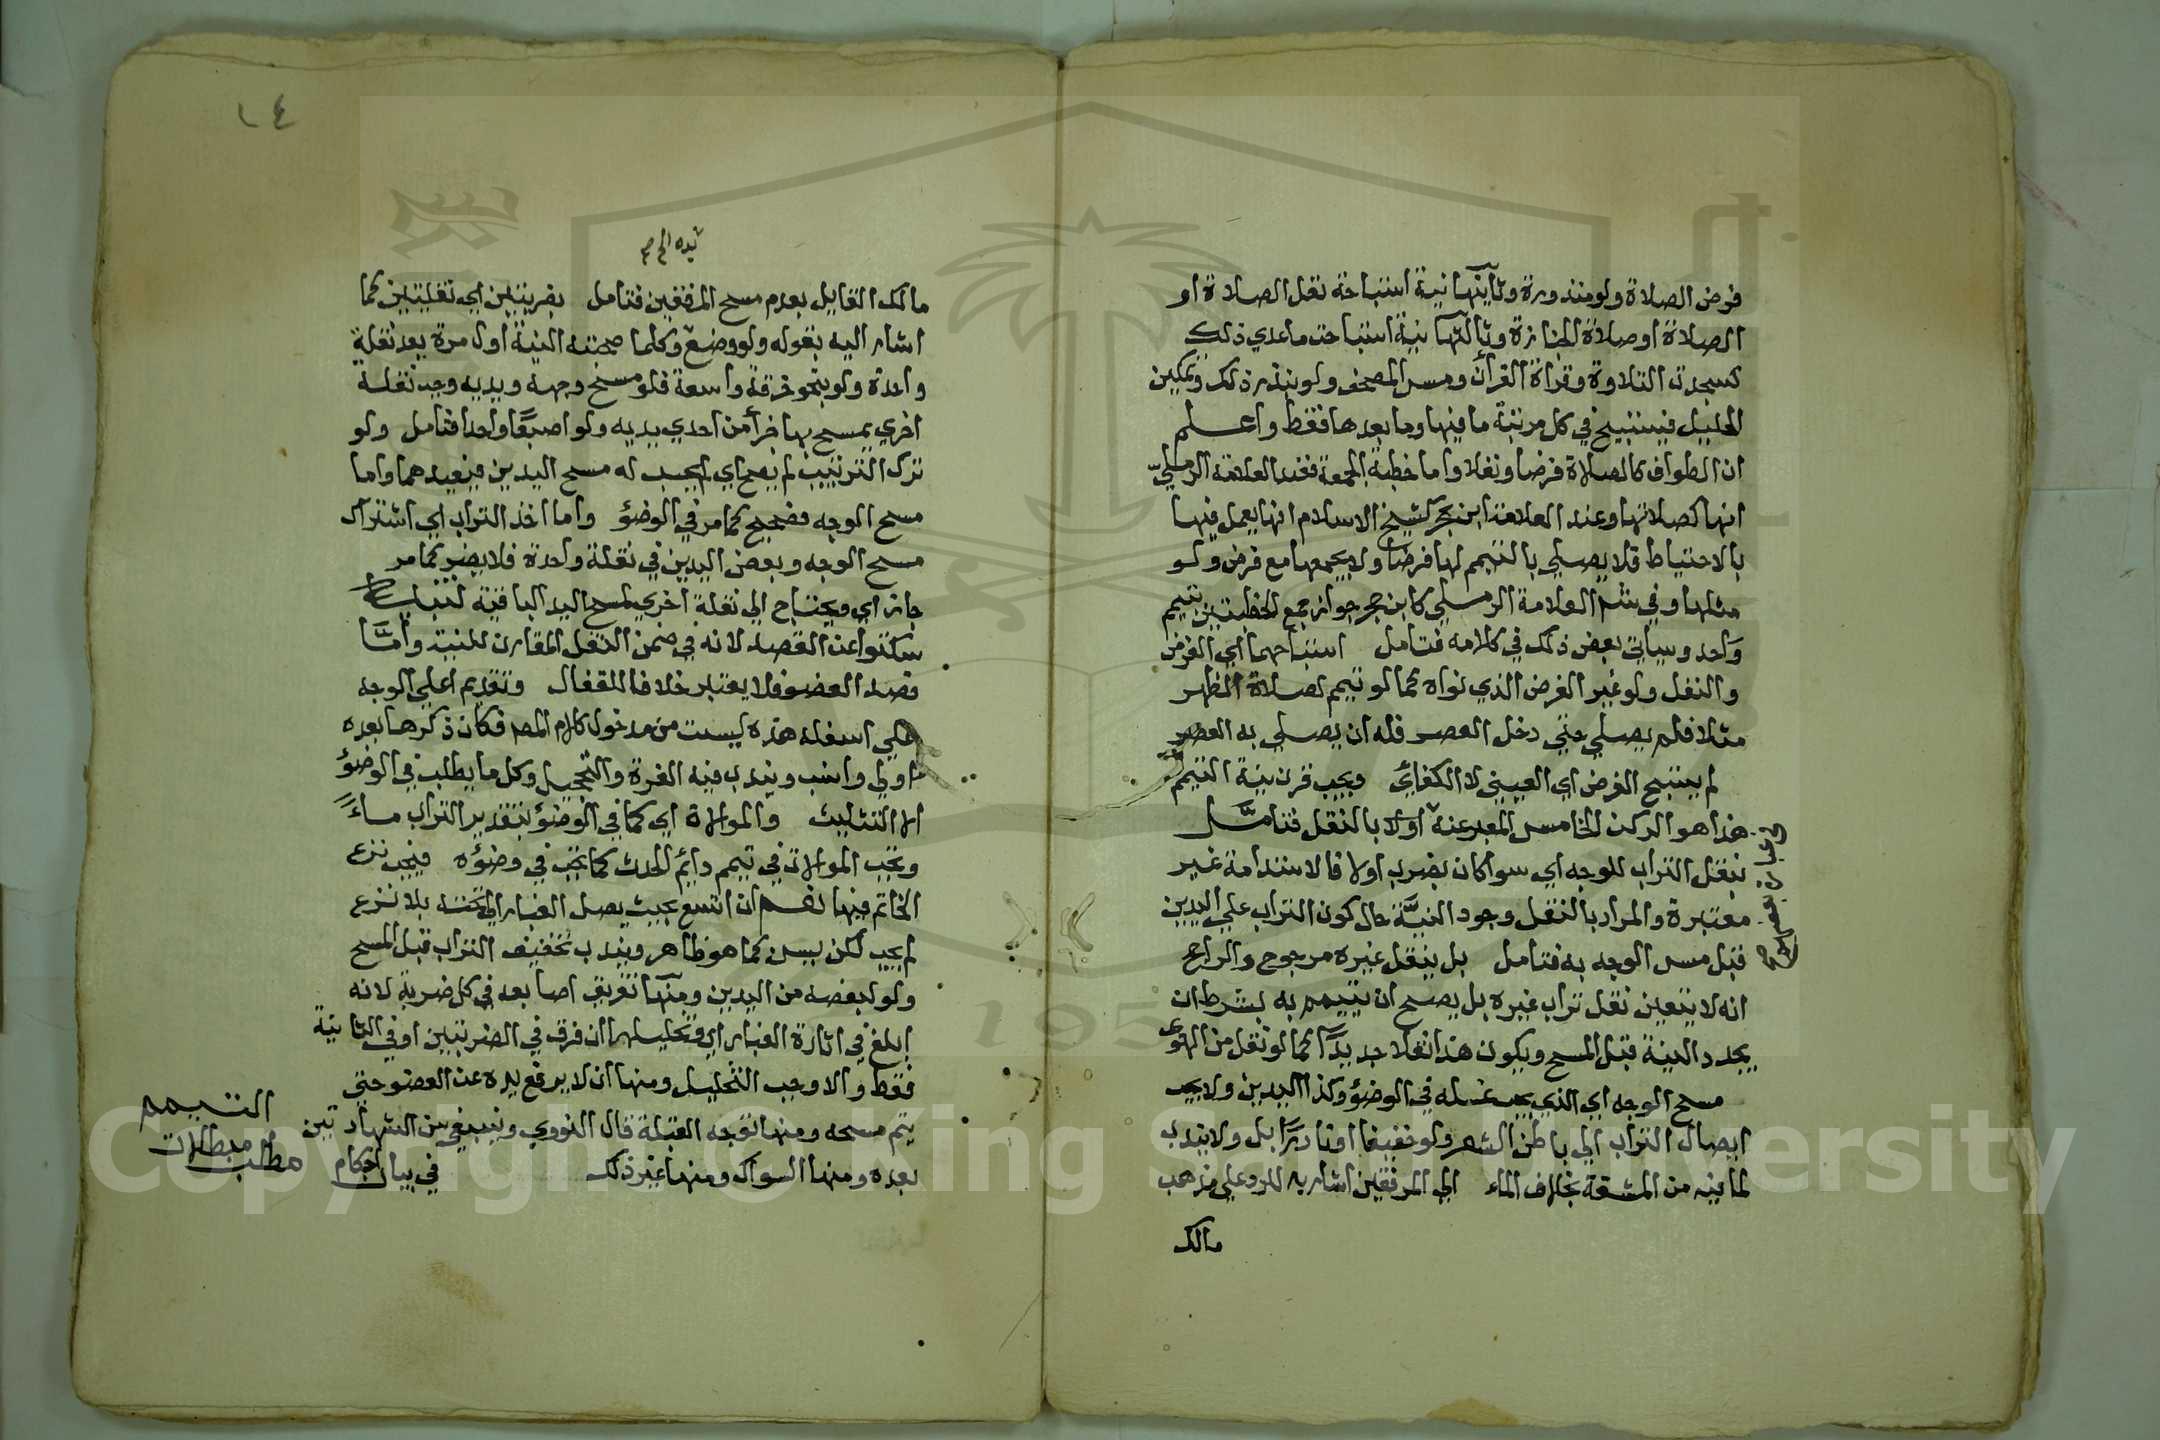 فرض الصلاة ولو منذورة وثانيتها نية استباحة نفل الصلاة او
الصلاة او صلاة الجنازة وثالثها نية استباحت ماعدي ذلك
كسجدت التلاوة وقراة القرآن ومس المصحف ولو بنذر ذلك وتمكين
الحليل فيستبيح في كل مرتبة ما فيها وما بعدها فقط واعلم
ان الطواف كالصلاة فرضا ونفلا واما خطبة الجمعة فعند العلامة الرملي
انها كصلاتها وعند العلامة ابن حجر كشيخ الاسلام انها يعمل فيها
بالاحتياط فلا يصلي بالتيمم لها فرضا ولا يجمعها مع فرض ولو
مثلها وفي شرح العلامة الرملي كابن حجر جواز جمع الخطبتين بتيمم
واحد وسياتي بعض ذلك في كلامه فتامل استباحهما اي الفرض
والنفل ولو غير الفرض الذي نواه كما لو تيمم لصلاة الظهر
مثلا فلم يصلي حتي دخل العصر فله ان يصلي به العصر
لم يستبح الفرض اي العيني لا الكفائي ويجب قرن نية التيمم
هذا هو الركن الخامس المعبر عنه اولا بالنقل فتامل
بنقل التراب للوجه اي سوا كان بضرب اولا فالاستدامة غير
معتبرة والمراد بالنقل وجود النية حال كون التراب علي اليدين
قبل مس الوجه به فتامل بل ينقل غيره مرجوح والراجح
انه لا يتعين نقل تراب غيره بل يصح ان يتيمم به بشرط ان
يجدد النية قبل المسح ويكون هذا نقلا جديدا كما لو نقل من الهوى
مسح الوجه اي الذي يجب غسله في الوضؤ وكذا اليدين ولا يجب
ايصال التراب الي باطن الشعر ولو خفيفا او نادرا بل ولا يندب
لما فيه من المشقة بخلاف الماء الي المرفقين اشار به للرد علي مذهب
مالك
١٤
مالك القايل بعدم مسح المرفقين فتامل بضربتين اي نقلتين كما
اشار اليه بقوله ولو وضع وكلما صحته النية اول مرة بعد نقلة
واحدة ولو بنحو خرقة واسعة فلو مسح وجهه ويديه وجب نقلة
اخري يمسح بها جزأ من احدي يديه ولو اصبعا واحدا فتامل ولو
ترك الترتيب لم يصح اي لم يحسب له مسح اليدين فيعيدهما واما
مسح الوجه فصحيح كما مر في الوضؤ واما اخذ التراب اي اشتراك
مسح الوجه وبعض اليدين في نقلة واحدة فلا يضر كما مر
جاز اي ويحتاج الي نقلة اخري لمسح اليد الباقية
سكتوا عن القصد لانه في ضمن النقل المقارن للنية واما
قصد العضو فلا يعتبر خلافا للقفال وتقديم اعلي الوجه
علي اسفله هذه ليست من مدخول كلام المصـ فكان ذكرها بعده
اولي وانسب ويندب فيه الغرة والتحجيل وكل ما يطلب في الوضؤ
الا التثليث والموالاة اي كما في الوضؤ بتقدير التراب ماءً
وتجب الموالات في تيمم دائم الحدث كما تجب في وضؤه فيجب نزع
الخاتم فيها نعم ان اتسع بحيث يصل الغبار الي تحته بلا نزع
لم يجب لكن يسن كما هو ظاهر ويندب تخفيف التراب قبل المسح
ولو لبعضه من اليدين ومنها تفريق اصابعه في كل ضربة لانه
ابلغ في اثارة الغبار اي وتخليلها ان فرق في الضربتين او في الثانية
فقط والا وجب التخليل ومنها ان لا يرفع يده عن العضو حتي
يتم مسحه ومنها توجه القبلة قال النووي وينبغي سن الشهادتين
بعده ومنها السواك ومنها غير ذلك في بيان احكام
التيمم
مطلب مبطلات
Copyright © King Saud University
195